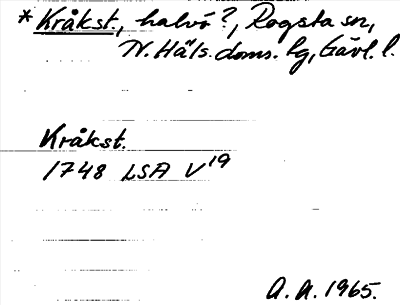 *Kråkst., halvö?, Rogsta sn,
N. Häls. doms. lg, Gävl. l.
Kråkst.
1748 LSA V19
A. A. 1965.